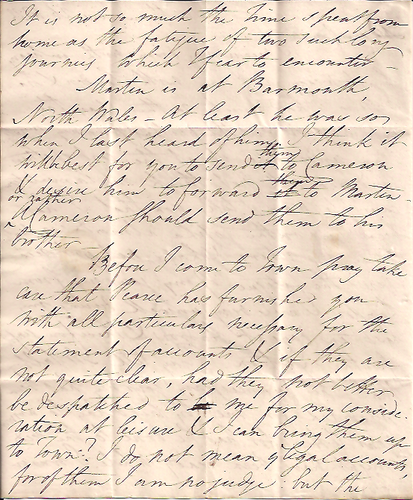 It is not so much the Time spent from
home as the fatigue of two such long
journeys which I fear to encounter -
Martin is at Barmouth,
North Wales - At least he was so,
when I last heard of him, I think it
will be best for you to send them to Cameron
& desire him to forward them to Martin -
or rather Cameron should send them to his
brother
Before I come to Town pray take
care that Pearce has furnished you
with all particulars necessary for the
statement of accounts & if they are
not quite clear, had they not better
be despatched to me for my conside-
ration at leisure & I can bring them up
to Town? I do not mean legal accounts,
for of them I am no judge: but the